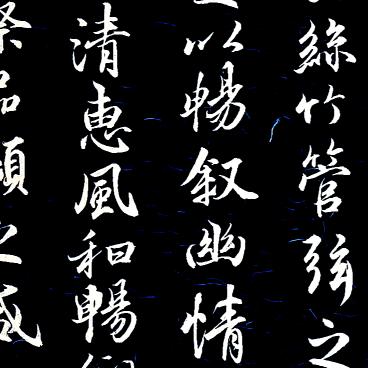 絲竹管弦之
以暢叙幽情
清惠風和暢
察品類之盛